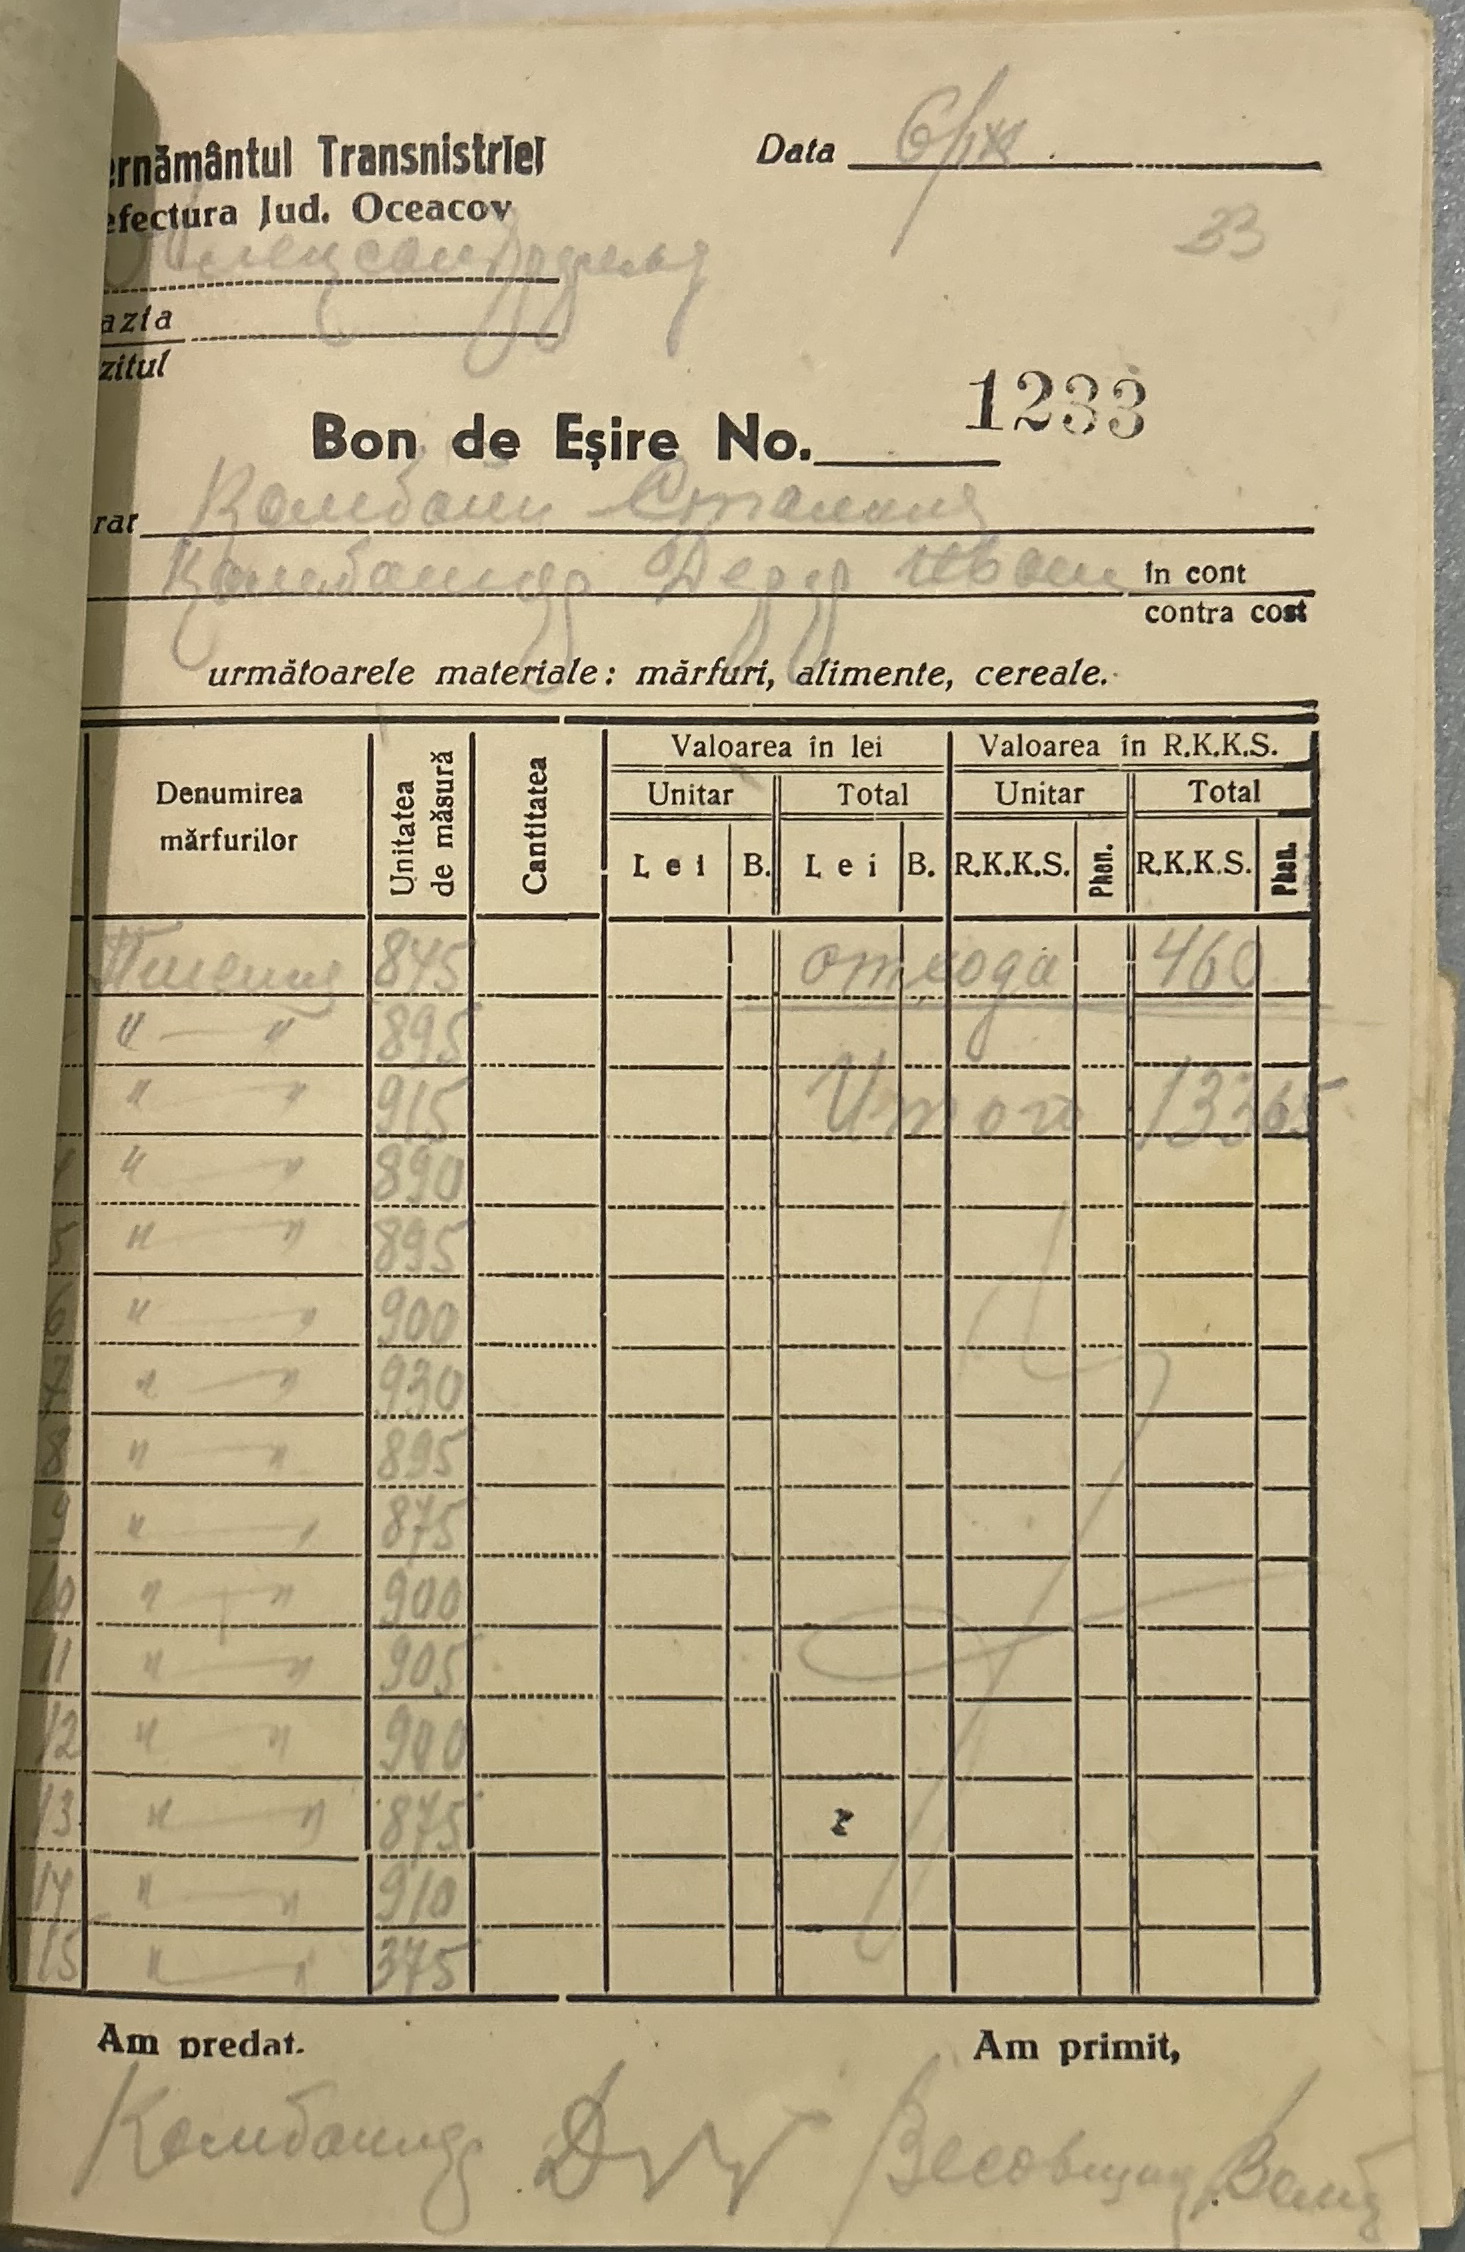 ernământul Transnistriei
Data 6/IX
efectura Jud. Oceacov
33
azia
zitul
Bon de Eșire No. 1233
rar Комбайн Сталина
Комбайнер Иван în cont
contra cost
următoarele materiale: mărfuri, alimente, cereale.
Denumirea mărfurilor Unitatea de măsură Cantitatea Valoarea în lei Valoarea în R.K.K.S.
Unitar Total Unitar Total
Lei B. Lei B. R.K.K.S. Phen. R.K.K.S. Phen.
845 отхода 460
" — " 895
" — " 915 Итого 13365
4 " — " 890
5 " — " 895
6 " — " 900
7 " — " 930
8 " — " 895
9 " — " 875
10 " — " 900
11 " — " 905
12 " — "
13 " — " 875
14 " — " 910
15 " — " 375
Am predat. Am primit,
Комбайнер Весовщик